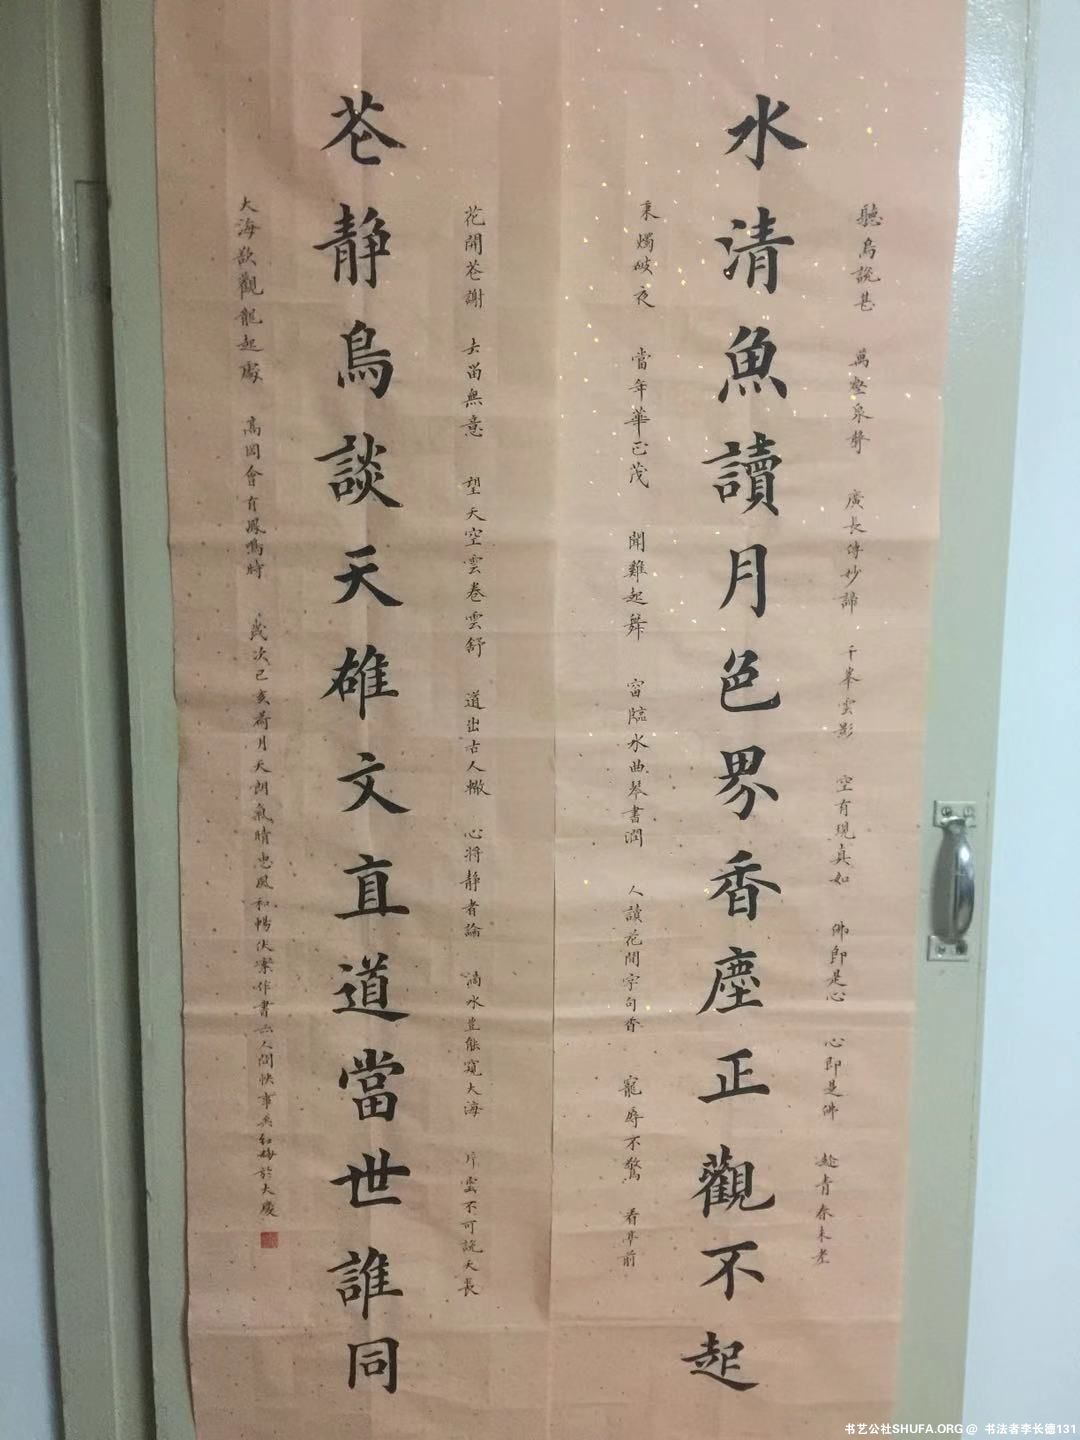 水清魚讀月色界香塵正觀不起
苍靜鳥談天雄文直道當世誰同
聽鳥説甚 萬壑泉聲 廣長傳妙諦 千峯雲影 空有現真如 佛即是心 心即是佛 趁青春未老
秉燭破夜 當年華正茂 聞雞起舞 窗臨水曲琴書潤 人讀花間字句香 寵辱不驚 看亭前
花開苍謝 去留無意 望天空雲卷雲舒 道出古人轍 心将静者論 滴水豈能窺大海 片雲不可説天長
大海欲觀龍起處 高岡會有鳳鳴時 歲次己亥荷月天朗氣晴惠風和暢伏案作書亦人間快事吴红梅於大慶
书艺公社SHUFA.ORG @ 书法者李长德131